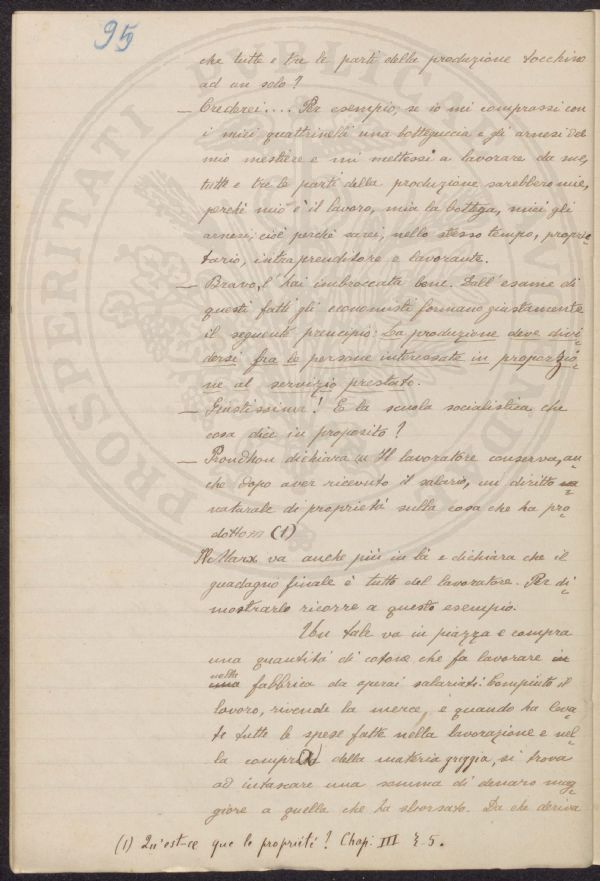 95
che tutte e tre le parti della produzione tocchino
ad un solo?
— Crederei.... Per esempio, se io mi comprassi con
i miei quattrinelli una botteguccia e gli arnesi del
mio mestiere e mi mettessi a lavorare da me,
tutte e tre le parti della produzione sarebbero mie,
perchè mio è il lavoro, mia la bottega, miei gli
arnesi; cioè perchè sarei, nello stesso tempo, proprie-
tario, intraprenditore e lavorante.
— Bravo, l'hai imbroccata bene. Dall'esame di
questi fatti gli economisti formano giustamente
il seguente principio: La produzione deve divi-
dersi fra le persone interessate in proporzio-
ne al servizio prestato.
— Giustissimo! E la scuola socialistica che
cosa dice in proposito?
— Proudhon dichiara "Il lavoratore conserva, an-
che dopo aver ricevuto il salario, un diritto na
naturale di proprietà sulla cosa che ha pro-
dotto" (1)
Marx va anche più in là e dichiara che il
guadagno finale è tutto del lavoratore. Per di-
mostrarlo ricorre a questo esempio.
Un tale va in piazza e compra
una quantità di cotone che fa lavorare in
nella
una fabbrica da operai salariati. Compiuto il
lavoro, rivende la merce, e quando ha leva-
te tutte le spese fatte nella lavorazione e nel-
la compra della materia greggia, si trova
ad intascare una somma di denaro mag-
giore a quella che ha sborsato. Da che deriva
(1) Qu'est-ce que la propriété? Chap. III § 5.
PROSPERITATI PVBLICAE